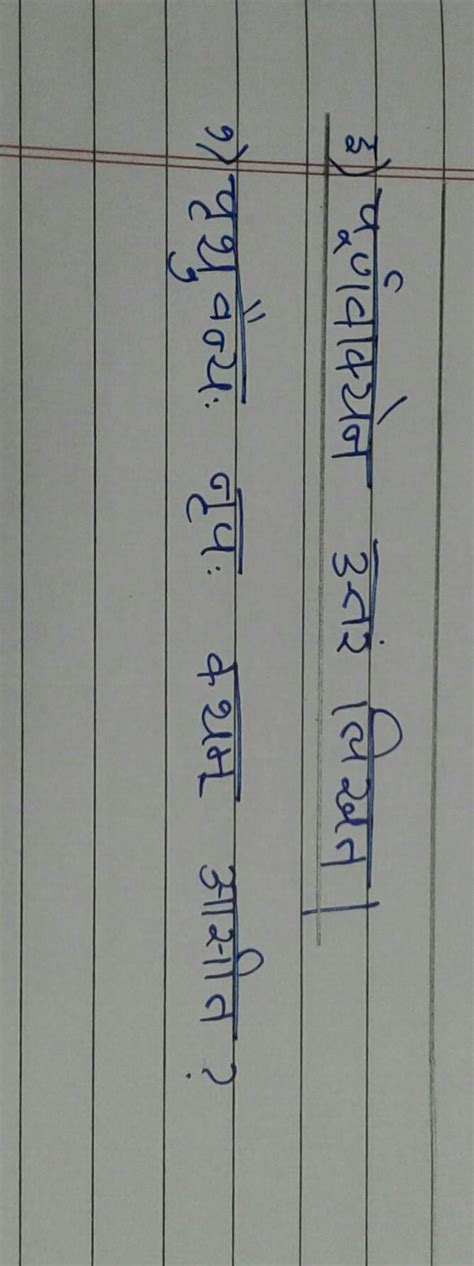 इ) पूर्णवाक्येन उत्तरं लिखत।
१) पृथुवैन्यः नृपः कथम् आसीत ?